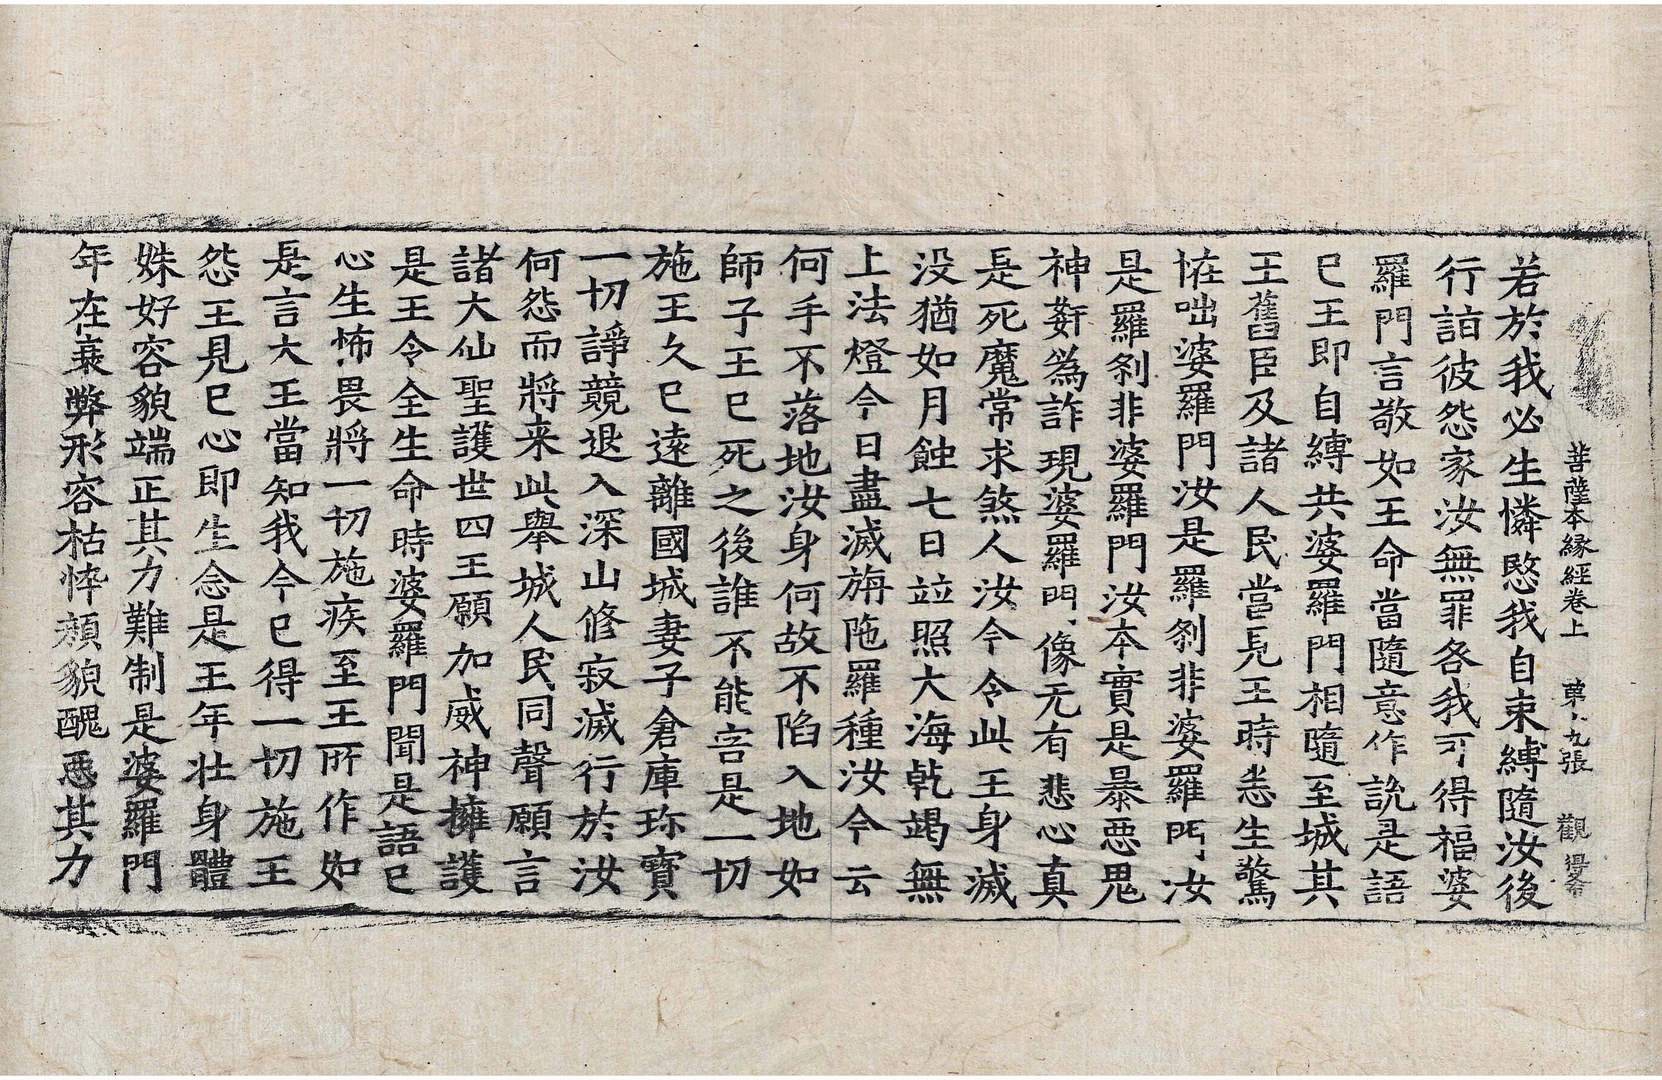 菩薩本緣經卷上 九張 觀
若於我必生憐愍我自束縛隨汝後
行詣彼怨家汝無罪咎我可得福婆
羅門言敬如王命當隨意作說是語
已王即自縛共婆羅門相隨至城其
王舊臣及諸人民當見王時悉生驚
恠咄婆羅門汝是羅刹非婆羅門汝
是羅刹非婆羅門汝本實是暴惡鬼
神姧為詐現婆羅門像无有悲心真
是死魔常求煞人汝今令此王身滅
没猶如月蝕七日並照大海乾竭無
上法燈今日盡滅旃陁羅種汝今云
何手不落地汝身何故不陷入地如
師子王已死之後誰不能害是一切
施王久已遠離國城妻子倉庫珎寶
一切諍競退入深山修寂滅行於汝
何怨而將来此舉城人民同聲願言
諸大仙聖護世四王願加威神擁護
是王令全生命時婆羅門聞是語已
心生怖畏將一切施疾至王所作如
是言大王當知我今已得一切施王
怨王見已心即生念是王年壯身體
姝好容貌端正其力難制是婆羅門
年在衰弊形容枯悴頹貌醜惡其力